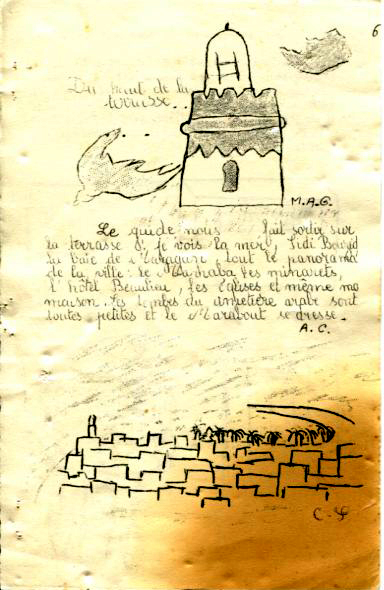 6
Du haut de la
terrasse..
M.A.G.
Le guide nous fait sortir sur
la terrasse je vois la mer, Sidi Bouzid
la baie de Mazagan, tout le panorama
de la ville : le les minarets,
l'hôtel Beaulieu, les églises et même ma
maison. Les tombes du cimetière arabe sont
toutes petites et le Marabout se dresse.
A.C.